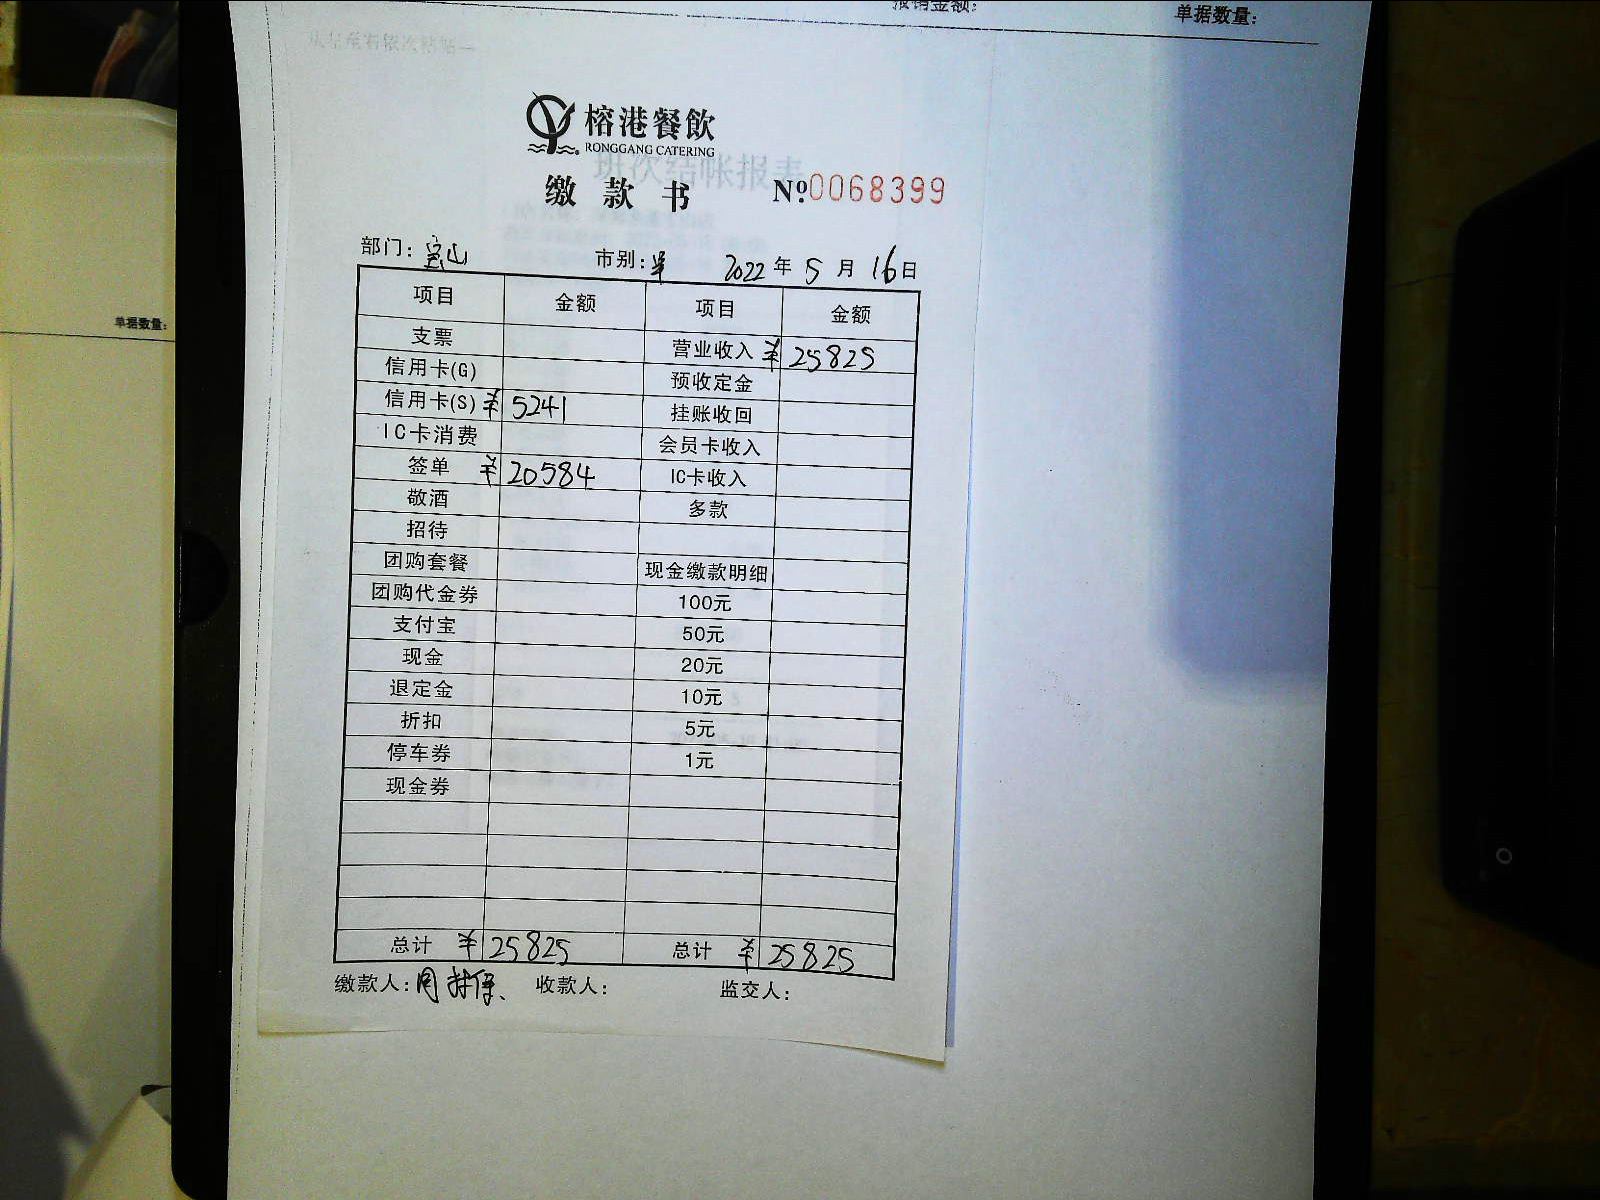 报销金额：
单据数量：
单据数量：
榕港餐飲
RONGGANG CATERING
班次结帐报表
缴款书 Nº.0068399
部门：宝山 市别： 2022年5月16日
项目 金额 项目 金额
支票 营业收入 ¥25825
信用卡(G) 预收定金
信用卡(S) ¥5241 挂账收回
IC卡消费 会员卡收入
签单 ¥20584 IC卡收入
敬酒 多款
招待
团购套餐 现金缴款明细
团购代金券 100元
支付宝 50元
现金 20元
退定金 10元
折扣 5元
停车券 1元
现金券
总计 ¥25825 总计 ¥25825
缴款人：周 收款人： 监交人：